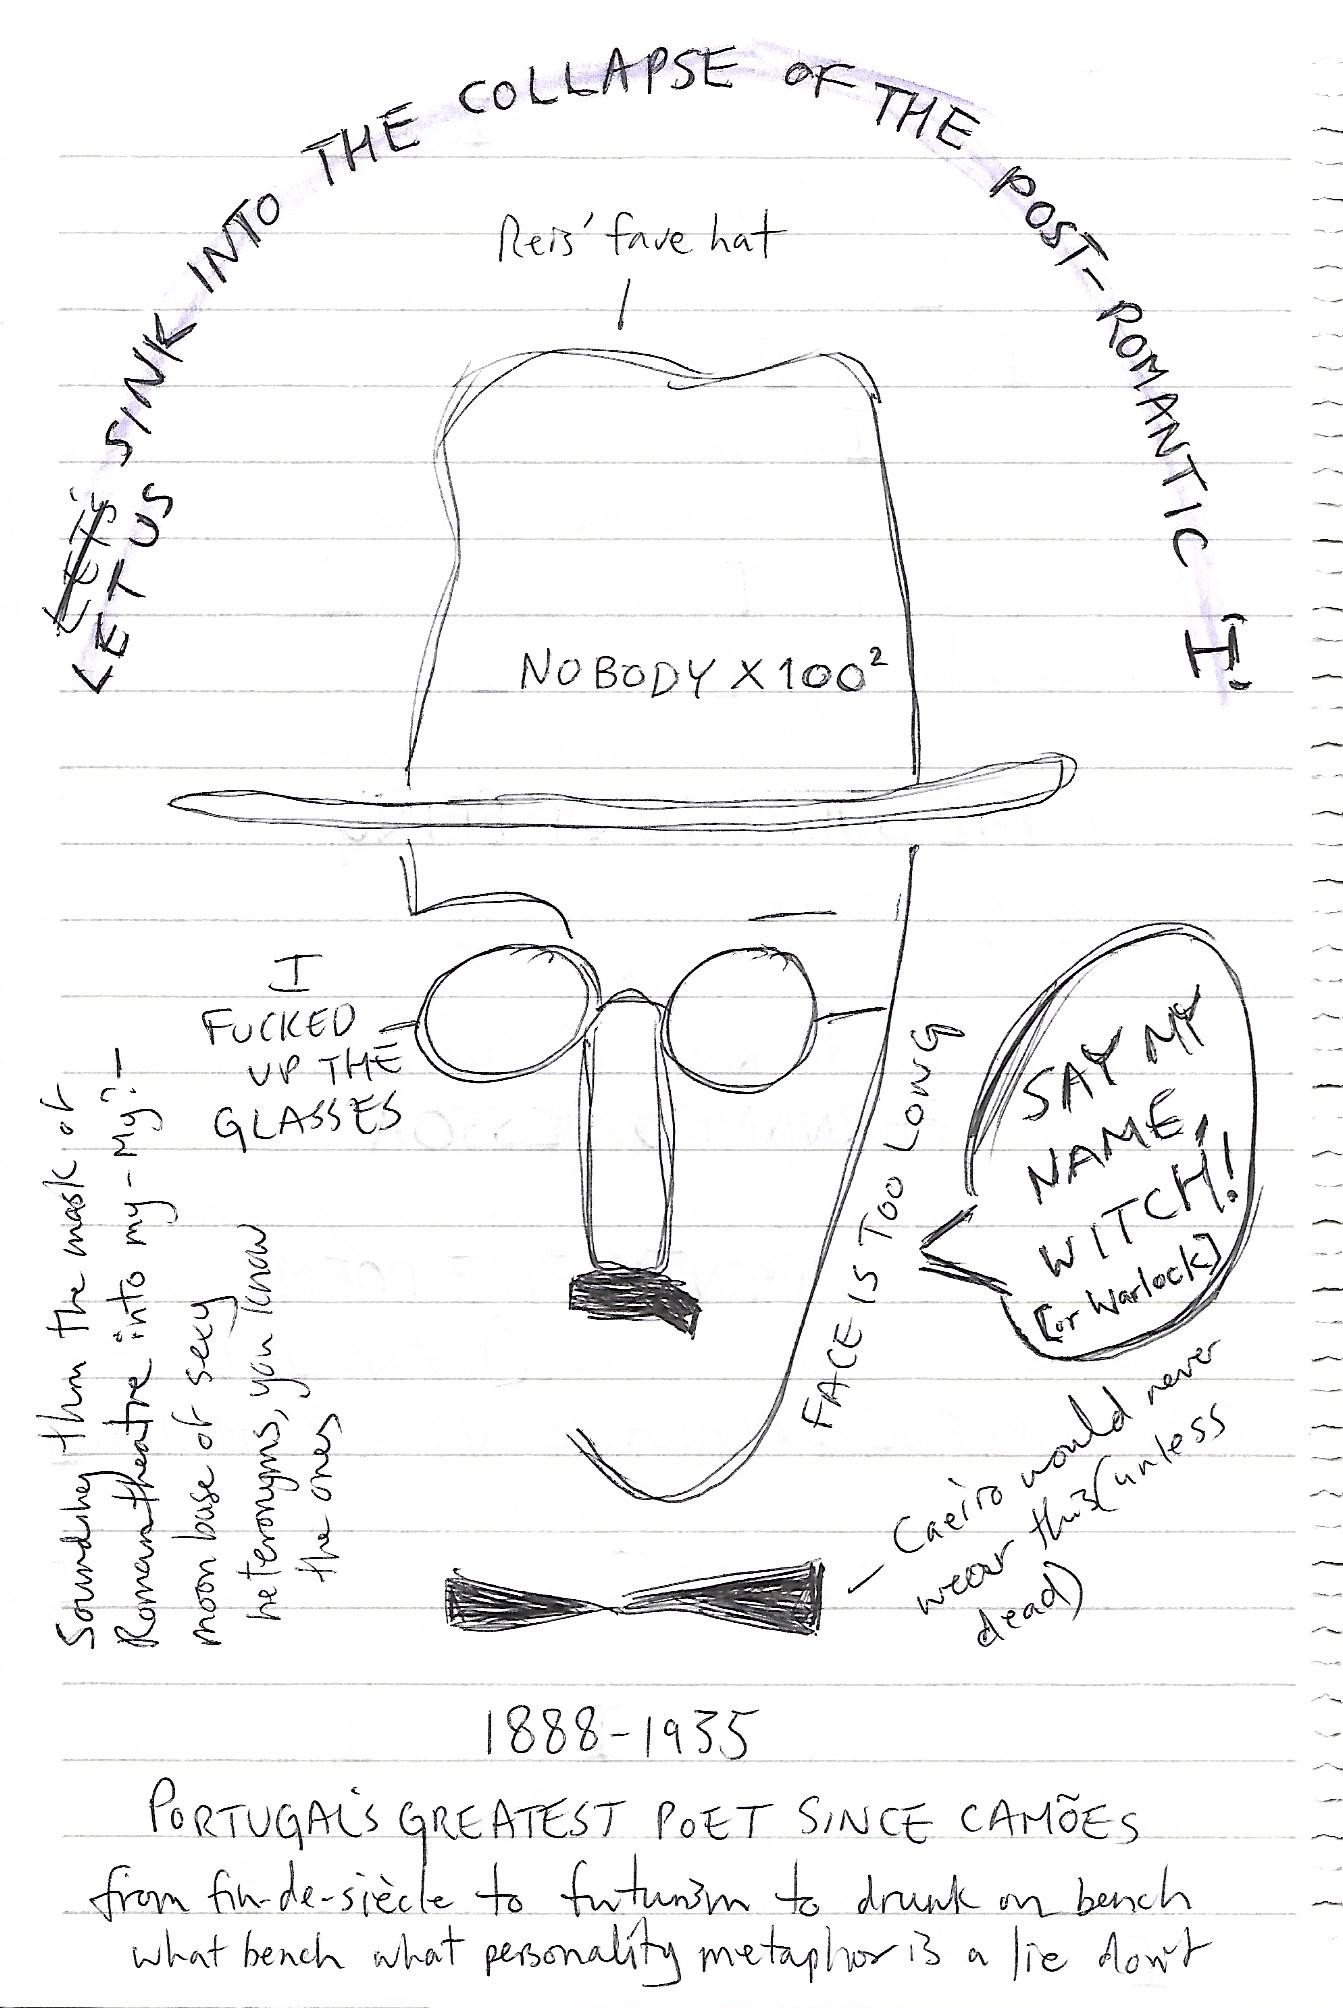 LET'S
LET US SINK INTO THE COLLAPSE OF THE POST-ROMANTIC 'I'
Reis' fave hat
NOBODY X 100²
I
FUCKED
UP THE
GLASSES
SAY MY
NAME,
WITCH!
[or Warlock]
FACE IS TOO LONG
Caeiro would never
wear this (unless
dead)
Sound thru the mask of
Roman theatre into my - My? -
moon base of sexy
heteronyms, you know
the ones
1888-1935
PORTUGAL'S GREATEST POET SINCE CAMÕES
from fin-de-siècle to futurism to drunk on bench
what bench what personality metaphor is a lie don't